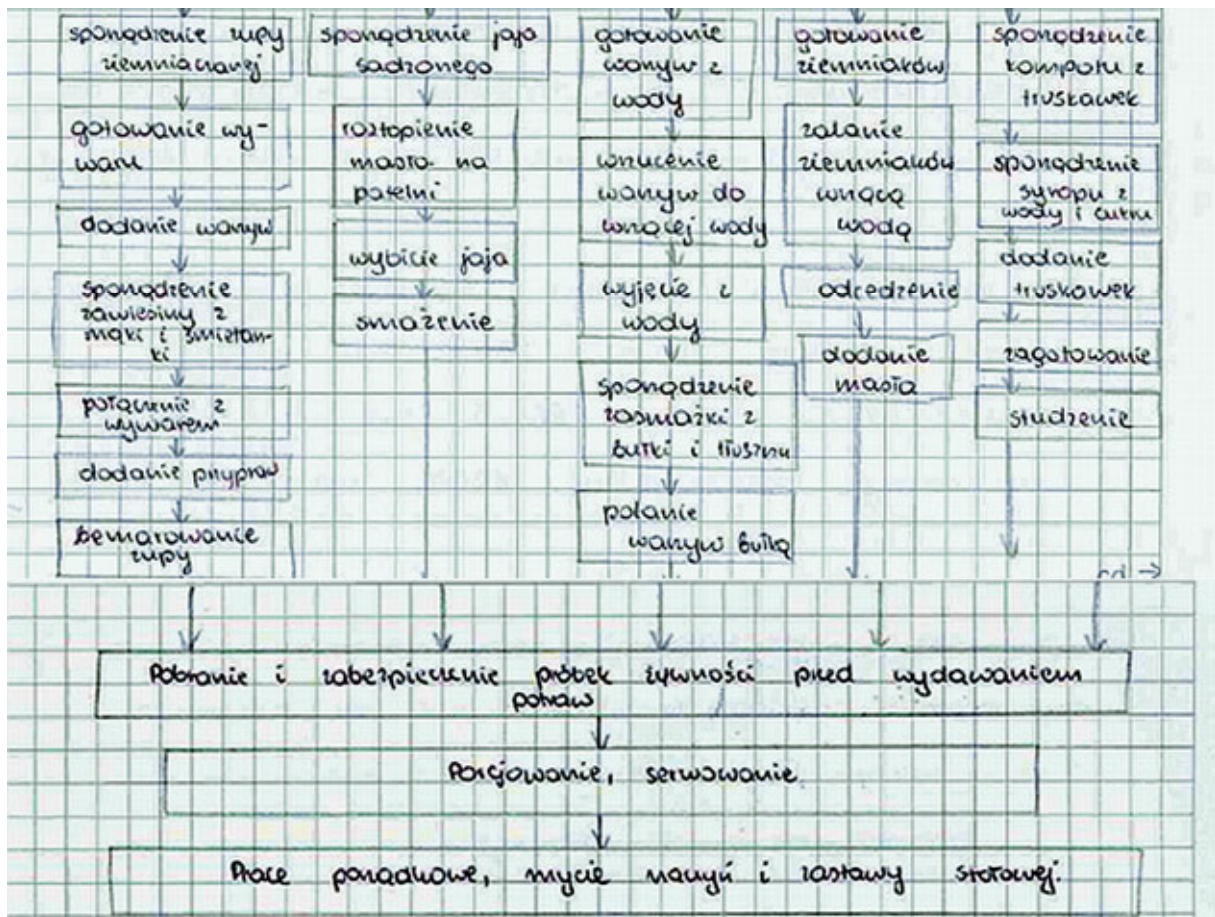 sporządzenie zupy
ziemniaczanej
gotowanie wy-
waru
dodanie warzyw
sporządzenie
zawiesiny z
mąki i śmietan-
ki
połączenie z
wywarem
dodanie przypraw
bemarowanie
zupy
sporządzenie jaja
sadzonego
roztopienie
masła na
patelni
wybicie jaja
smażenie
gotowanie
warzyw z
wody
wrzucenie
warzyw do
wrzącej wody
wyjęcie z
wody
sporządzenie
zasmażki z
bułki i tłuszczu
polanie
warzyw bułką
gotowanie
ziemniaków
zalanie
ziemniaków
wrzącą
wodą
odcedzenie
dodanie
masła
sporządzenie
kompotu z
truskawek
sporządzenie
syropu z
wody i cukru
dodanie
truskawek
zagotowanie
studzenie
cd →
Pobranie i zabezpieczenie próbek żywności przed wydawaniem
potraw
Porcjowanie, serwowanie.
Prace porządkowe, mycie naczyń i zastawy stołowej.